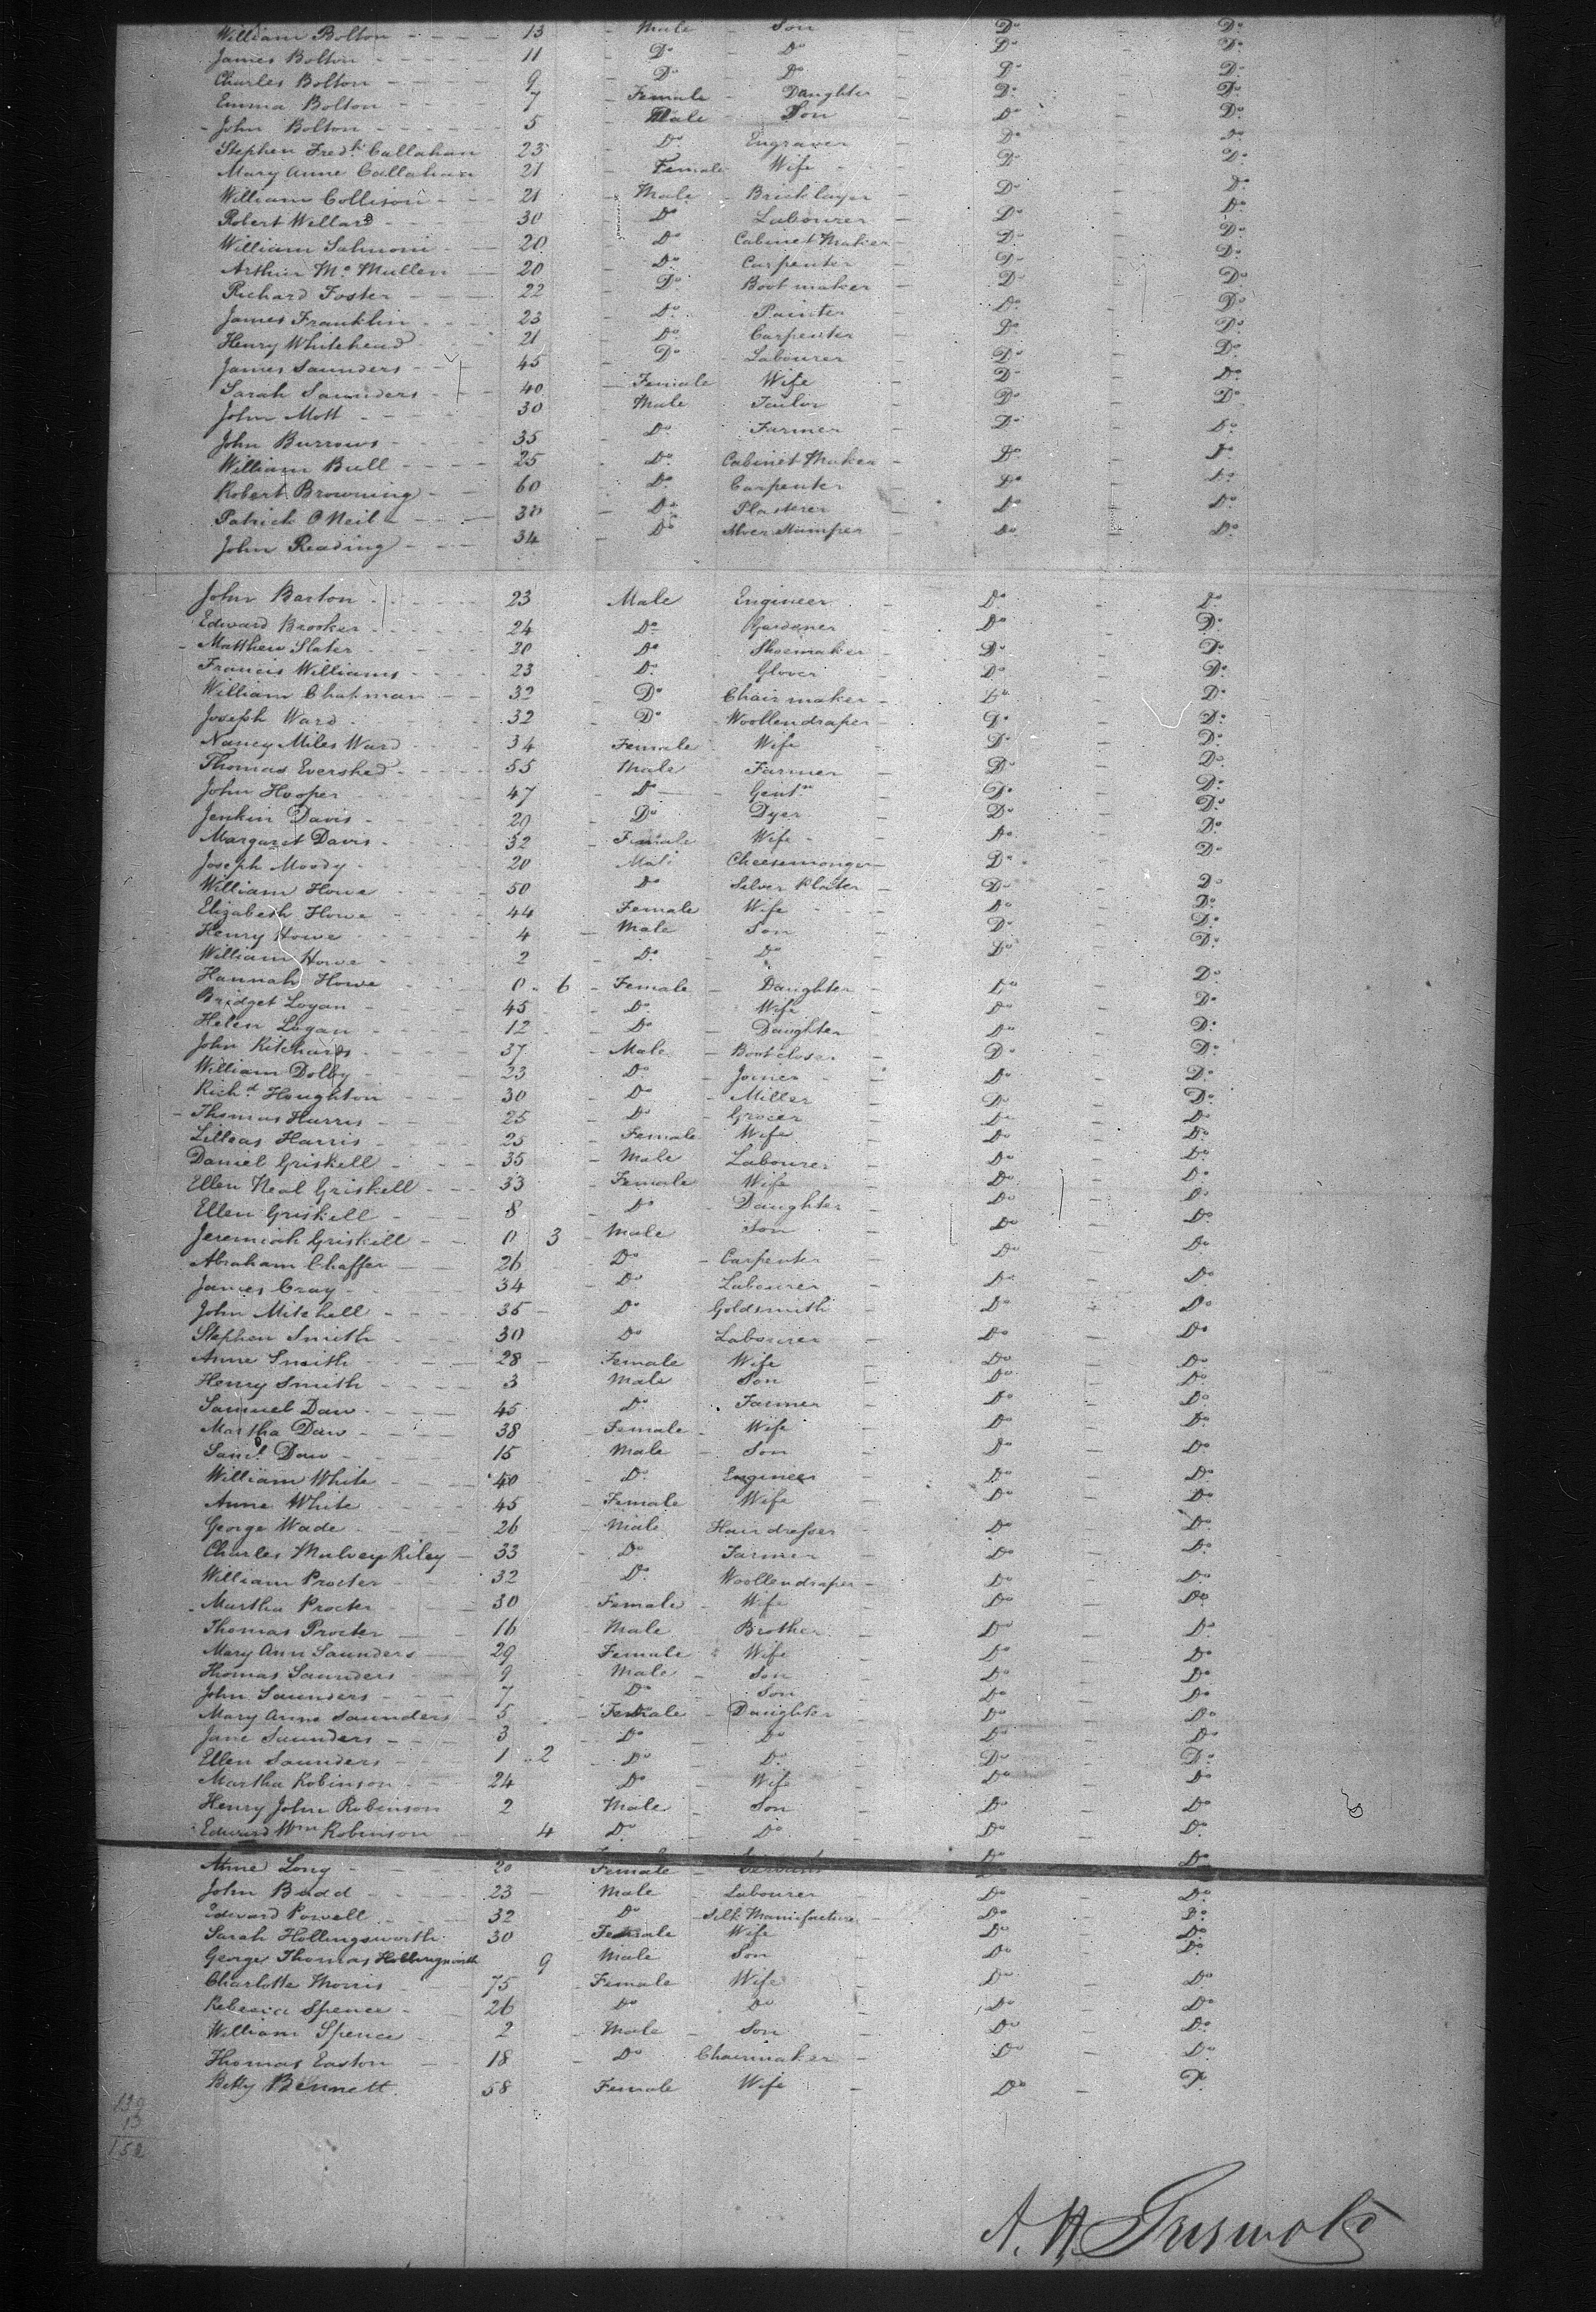 William Bolton 13 Male Son Do Do
James Bolton 11 Do Do Do Do
Charles Bolton 9 Do Do Do Do
Emma Bolton 7 Female Daughter Do Do
John Bolton 5 Male Son Do Do
Stephen Fredk Callahan 23 Do Engraver Do Do
Mary Anne Callahan 21 Female Wife Do Do
William Collison 21 Male Bricklayer Do Do
Robert Willard 30 Do Labourer Do Do
William Salmoni 20 Do Cabinet Maker Do Do
Arthur Mc Mullen 20 Do Carpenter Do Do
Richard Foster 22 Do Bootmaker Do Do
James Franklin 23 Do Painter Do Do
Henry Whitehead 21 Do Carpenter Do Do
James Saunders 45 Do Labourer Do Do
Sarah Saunders 40 Female Wife Do Do
John Mott 30 Male Tailor Do Do
John Burrows 35 Do Farmer Do Do
William Bull 25 Do Cabinet Maker Do Do
Robert Browning 60 Do Carpenter Do Do
Patrick O Neil 30 Do Plasterer Do Do
John Reading 34 Do Do Do
John Barton 23 Male Engineer Do Do
Edward Brooker 24 Do Gardener Do Do
Matthew Slater 20 Do Shoemaker Do Do
Francis Williams 23 Do Glover Do Do
William Chapman 32 Do Chair maker Do Do
Joseph Ward 32 Do Woollendraper Do Do
Nancy Miles Ward 34 Female Wife Do Do
Thomas Evershed 55 Male Farmer Do Do
John Hooper 47 Do Gentn Do Do
Jenkin Davis 20 Do Dyer Do Do
Margaret Davis 32 Female Wife Do Do
Joseph Moody 20 Male Cheesemonger Do Do
William Howe 50 Do Silver Plater Do Do
Elizabeth Howe 44 Female Wife Do Do
Henry Howe 4 Male Son Do Do
William Howe 2 Do Do Do Do
Hannah Howe 0 6 Female Daughter Do Do
Bridget Logan 45 Do Wife Do Do
Helen Logan 12 Do Daughter Do Do
John Ritchards 37 Male Bootcloser Do Do
William Dolby 23 Do Joiner Do Do
Richd Houghton 30 Do Miller Do Do
Thomas Harris 25 Do Grocer Do Do
Lilleas Harris 25 Female Wife Do Do
Daniel Griskell 35 Male Labourer Do Do
Ellen Neal Griskell 33 Female Wife Do Do
Ellen Griskell 8 Do Daughter Do Do
Jeremiah Griskell 0 3 Male Son Do Do
Abraham Chaffer 26 Do Carpenter Do Do
James Cray 34 Do Labourer Do Do
John Mitchell 35 Do Goldsmith Do Do
Stephen Smith 30 Do Labourer Do Do
Anne Smith 28 Female Wife Do Do
Henry Smith 3 Male Son Do Do
Samuel Daw 45 Do Farmer Do Do
Martha Daw 38 Female Wife Do Do
Saml Daw 15 Male Son Do Do
William White 40 Do Engineer Do Do
Anne White 45 Female Wife Do Do
George Wade 26 Male Hairdresser Do Do
Charles Mulvey Riley 33 Do Farmer Do Do
William Procter 32 Do Woollendraper Do Do
Martha Procter 30 Female Wife Do Do
Thomas Procter 16 Male Brother Do Do
Mary Ann Saunders 29 Female Wife Do Do
Thomas Saunders 9 Male Son Do Do
John Saunders 7 Do Son Do Do
Mary Anne Saunders 5 Female Daughter Do Do
Jane Saunders 3 Do Do Do Do
Ellen Saunders 1 2 Do Do Do Do
Martha Robinson 24 Do Wife Do Do
Henry John Robinson 2 Male Son Do Do
Edward Wm Robinson 4 Do Do Do Do
Anne Long 20 Female Servant Do Do
John Budd 23 Male Labourer Do Do
Edward Powell 32 Do Silk Manufacturer Do Do
Sarah Hollingsworth 30 Female Wife Do Do
George Thomas Hollingsworth 9 Male Son Do Do
Charlotte Morris 75 Female Wife Do Do
Rebecca Spence 26 Do Do Do Do
William Spence 2 Male Son Do Do
Thomas Easton 18 Do Chairmaker Do Do
Betty Bennett 58 Female Wife Do Do
139
13
152
A. H. Griswold